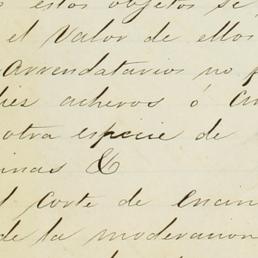 estos objetos se
el valor de ellos
arrendatarios no
acheros ó
otra especie de
inas &
l corte de encin
de la moderacion